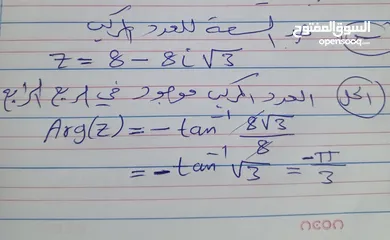 السعة للعدد المركب
السوق المفتوح
opensooq.com
z = 8 - 8i√3
الحل العدد المركب موجود في الربع الرابع
Arg(z) = - tan⁻¹ 8√3/8
= - tan⁻¹ √3 = -π/3
neon